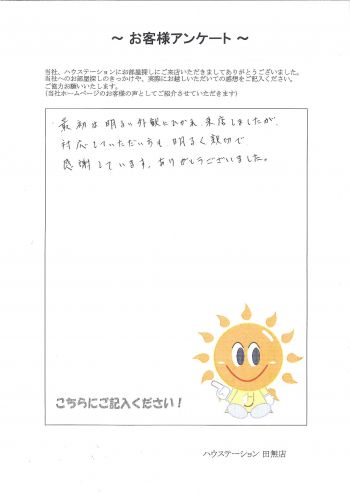 ～ お客様アンケート ～
当社、ハウステーションにお部屋探しにご来店いただきましてありがとうございました。
当社へのお部屋探しのきっかけや、実際にお越しいただいての感想をご記入ください。
ご協力お願いいたします。
(当社ホームページのお客様の声としてご紹介させていただきます)
最初は明るい外観にひかれ、来店しましたが、
対応していただいた方も明るく親切で
感謝しています。ありがとうございました。
こちらにご記入ください！
ハウステーション 田無店